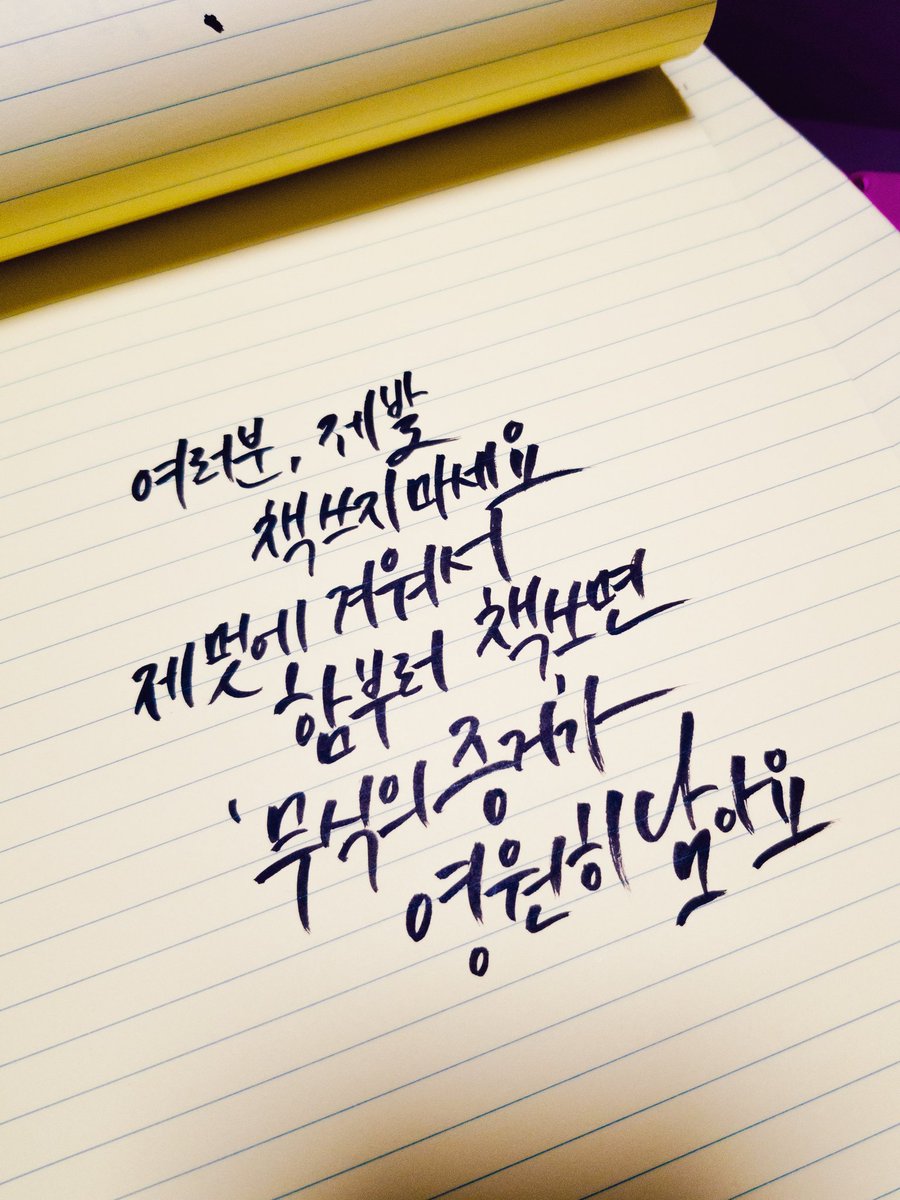 여러분, 제발
책쓰지마세요
제멋에 겨워서
함부러 책쓰면
'무식의 증거'가
영원히 남아요